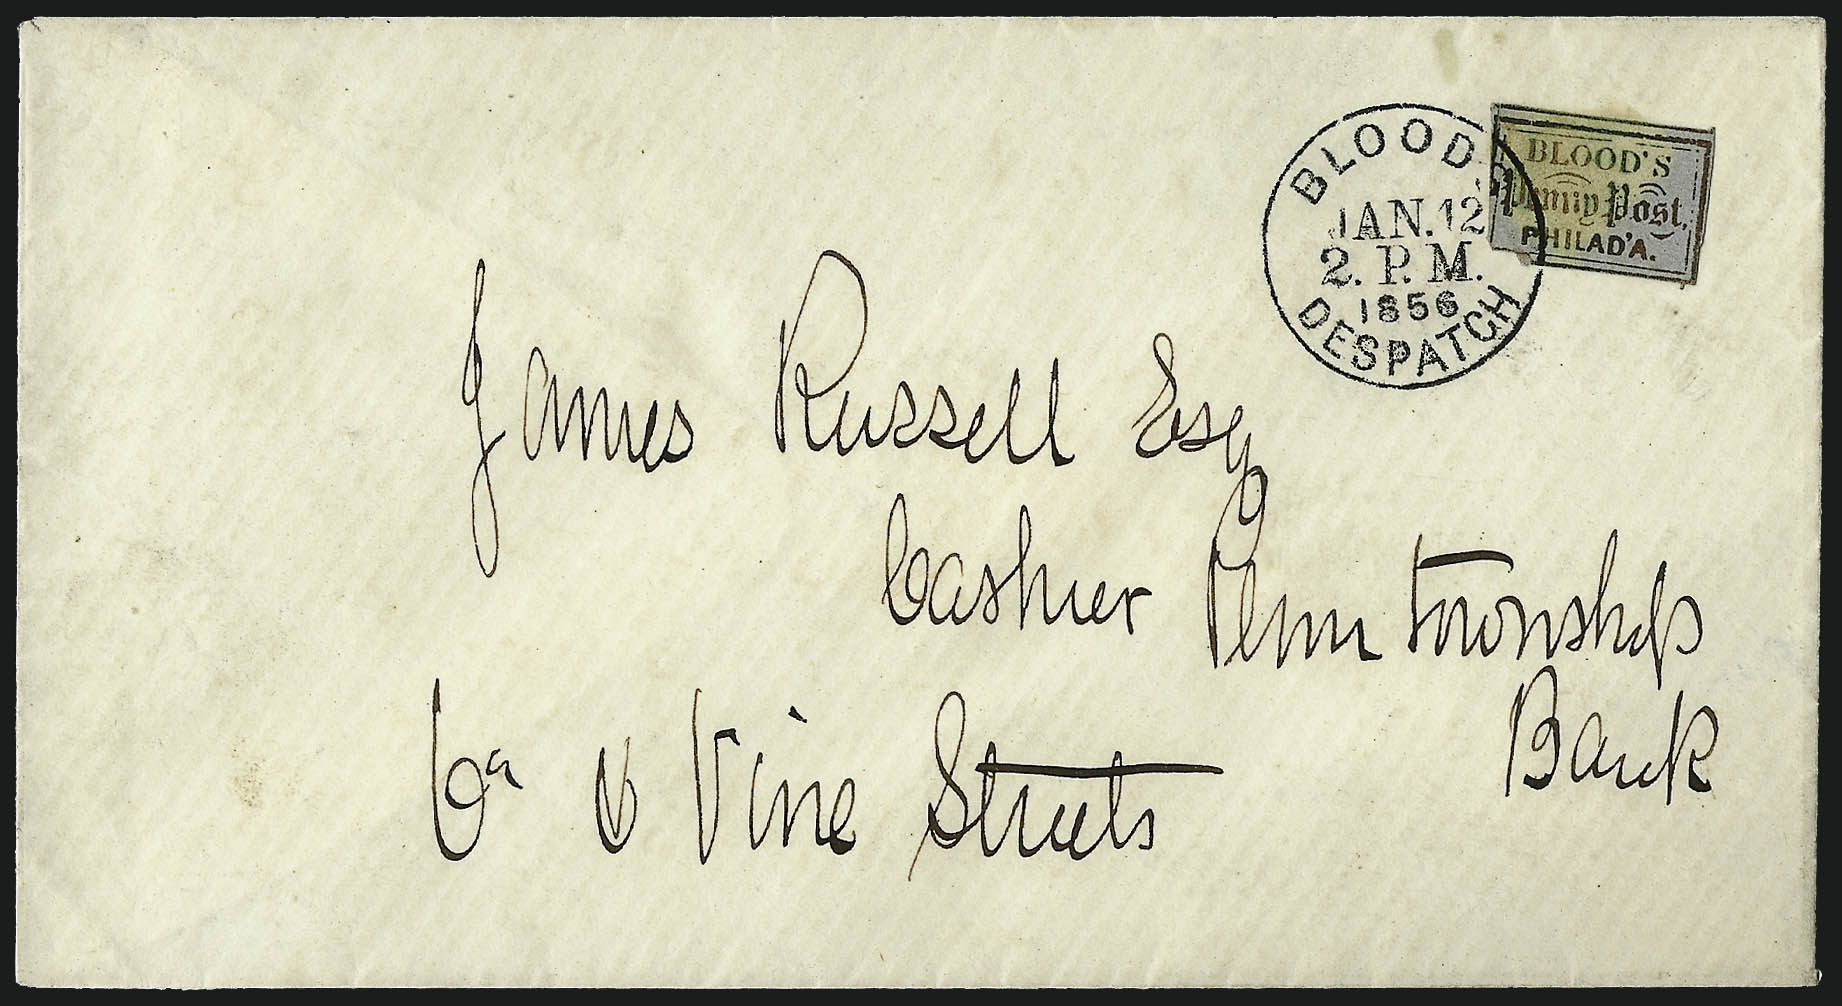 BLOOD'S
JAN. 12
2. P. M.
1856
DESPATCH
BLOOD'S
Penny Post,
PHILAD'A.
James Russell Esq
Cashier Penn Township
Bank
6th & Vine Streets